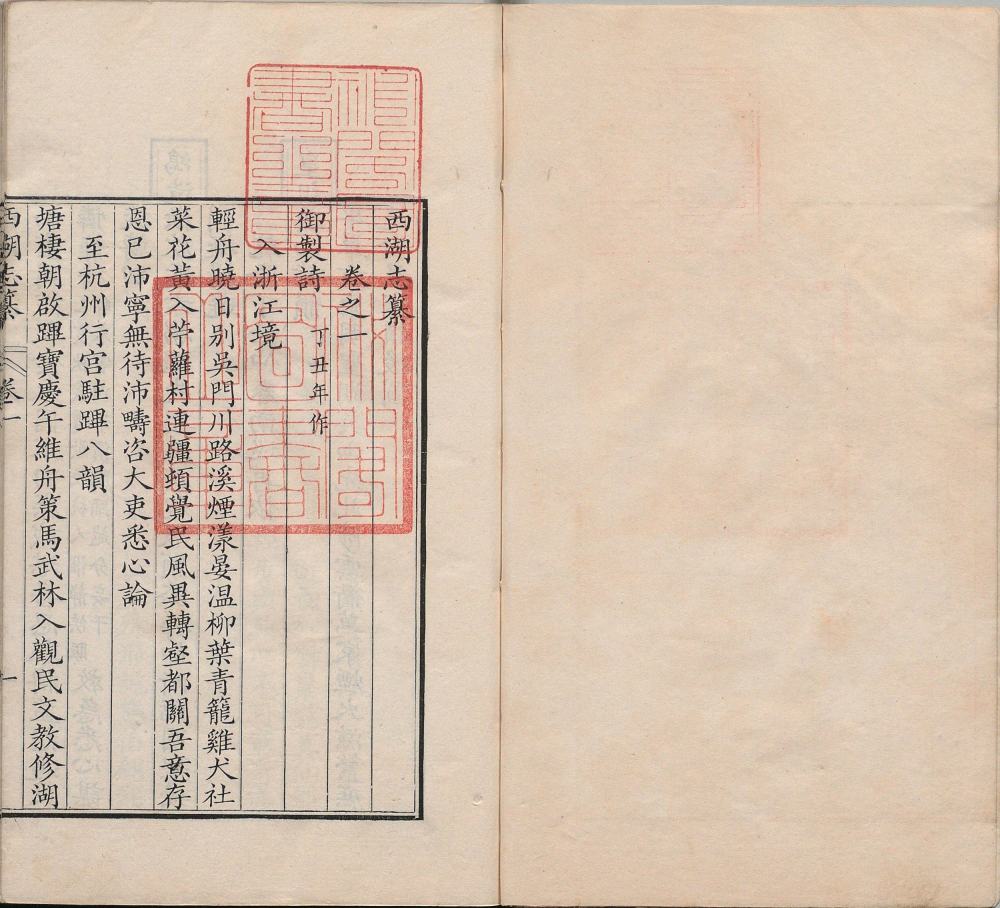 西湖志纂
卷之一
御製詩 丁丑年作
入浙江境
輕舟曉日别吳門川路溪煙漾晏温柳葉青籠雞犬社
菜花黃入苧蘿村連疆頓覺民風異轉壑都關吾意存
恩已沛寧無待沛疇咨大吏悉心論
至杭州行宫駐蹕八韻
塘棲朝啟蹕寶慶午維舟策馬武林入觀民文教修湖
西湖志纂 卷一 一